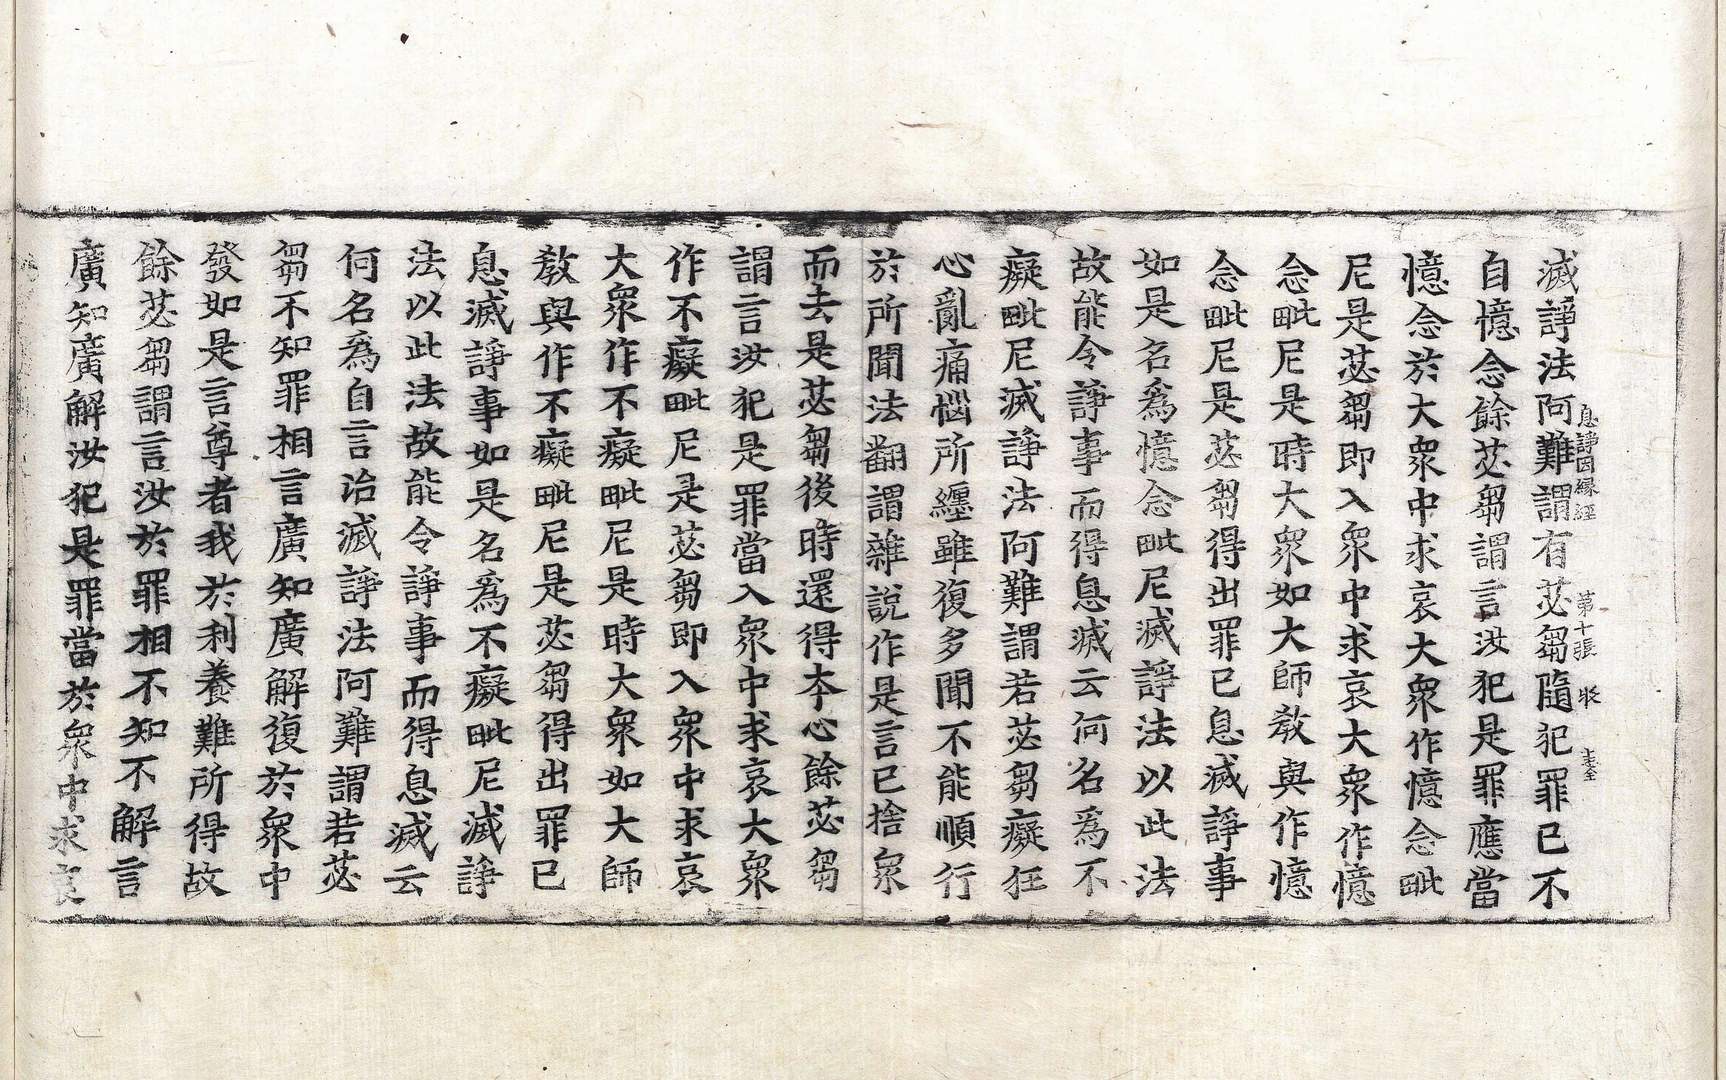 滅諍法阿難謂有苾芻隨犯罪已不
息諍因緣經 第十張
自憶念餘苾芻謂言汝犯是罪應當
憶念於大眾中求哀大眾作憶念毗
尼是苾芻即入眾中求哀大眾作憶
念毗尼是時大眾如大師教與作憶
念毗尼是苾芻得出罪已息滅諍事
如是名為憶念毗尼滅諍法以此法
故能令諍事而得息滅云何名為不
癡毗尼滅諍法阿難謂若苾芻癡狂
心亂痛惱所纏雖復多聞不能順行
於所聞法翻謂雜說作是言已捨眾
而去是苾芻後時還得本心餘苾芻
謂言汝犯是罪當入眾中求哀大眾
作不癡毗尼是苾芻即入眾中求哀
大眾作不癡毗尼是時大眾如大師
教與作不癡毗尼是苾芻得出罪已
息滅諍事如是名為不癡毗尼滅諍
法以此法故能令諍事而得息滅云
何名為自言治滅諍法阿難謂若苾
芻不知罪相言廣知廣解復於眾中
發如是言尊者我於利養難所得故
餘苾芻謂言汝於罪相不知不解言
廣知廣解汝犯是罪當於眾中求哀